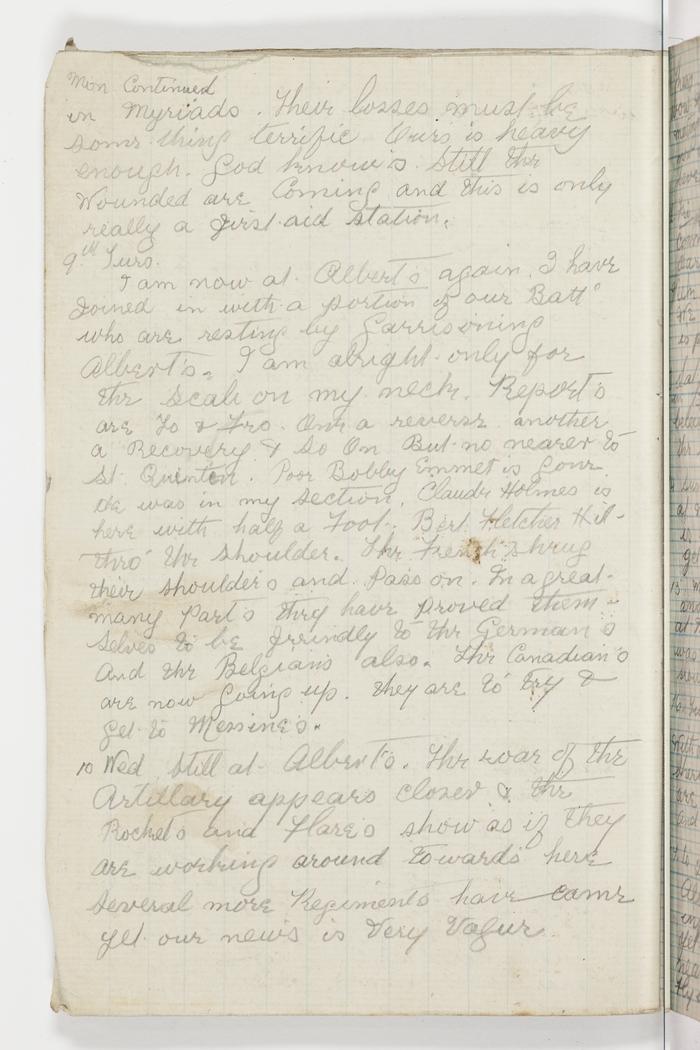 Mon Continued
in Myriads. Their losses must be
some thing terrific Ours is heavy
enough. God know's. Still the
Wounded are Coming and this is only
really a first aid station.
9th Tues.
I am now at Albert's again. I have
Joined in with a portion of our Batt
who are resting by Garrisoning
Albert's. I am alright only for
the scale on my neck. Report's
are To & Fro. One a reverse another
a Recovery & So On But no nearer to
St. Quinten. Poor Bobby Emmet is Gone
He was in my section. Claude Holmes is
here with half a Foot. Bert Fletcher Hit
thro' the shoulder. The French shrug
their shoulders and Pass on. In a great
many Part's they have proved them-
selves to be freindly to the German's
And the Belgians also. The Canadian's
are now Going up. they are to try &
get to Messine's.
10 Wed Still at Albert's. The roar of the
Artillary appears closer & the
Rocket's and Flare's show as if they
are working around towards here
Several more Regiments have came
yet our news is Very Vague